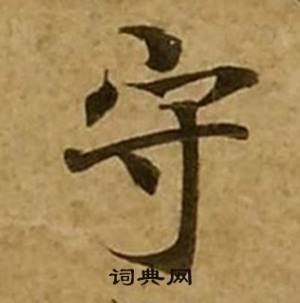 守
词典网